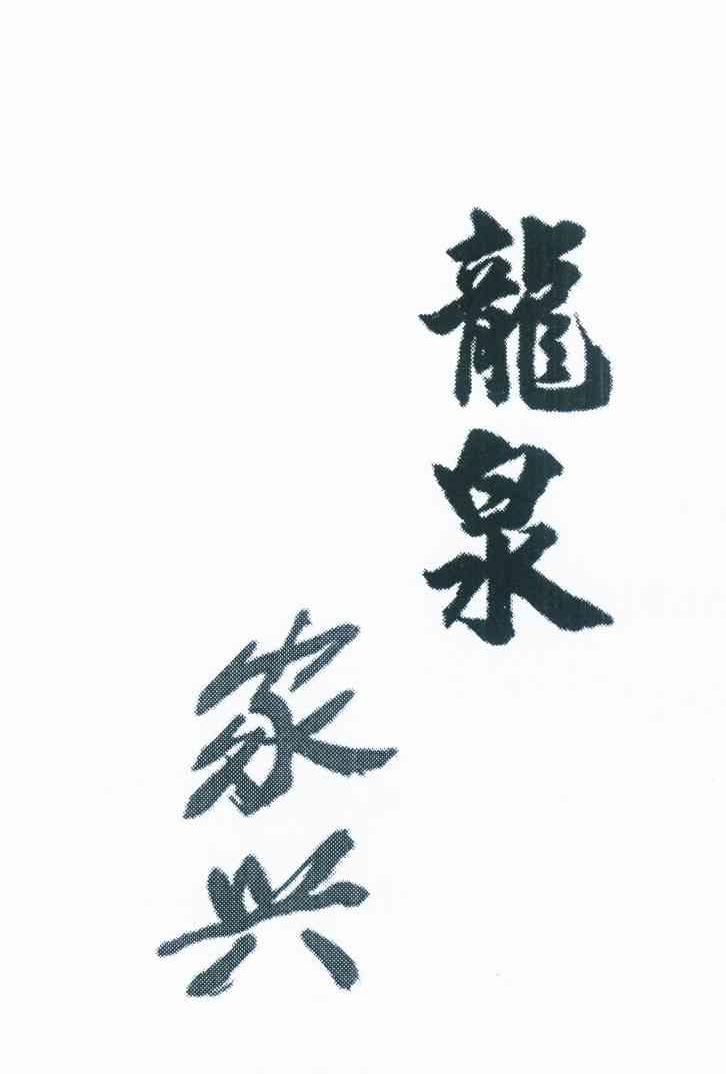 龍泉
家兴